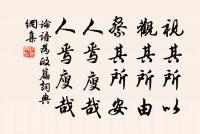 視其所以
觀其所由
察其所安
人焉廋哉
人焉廋哉
論語為政篇詞典
網集